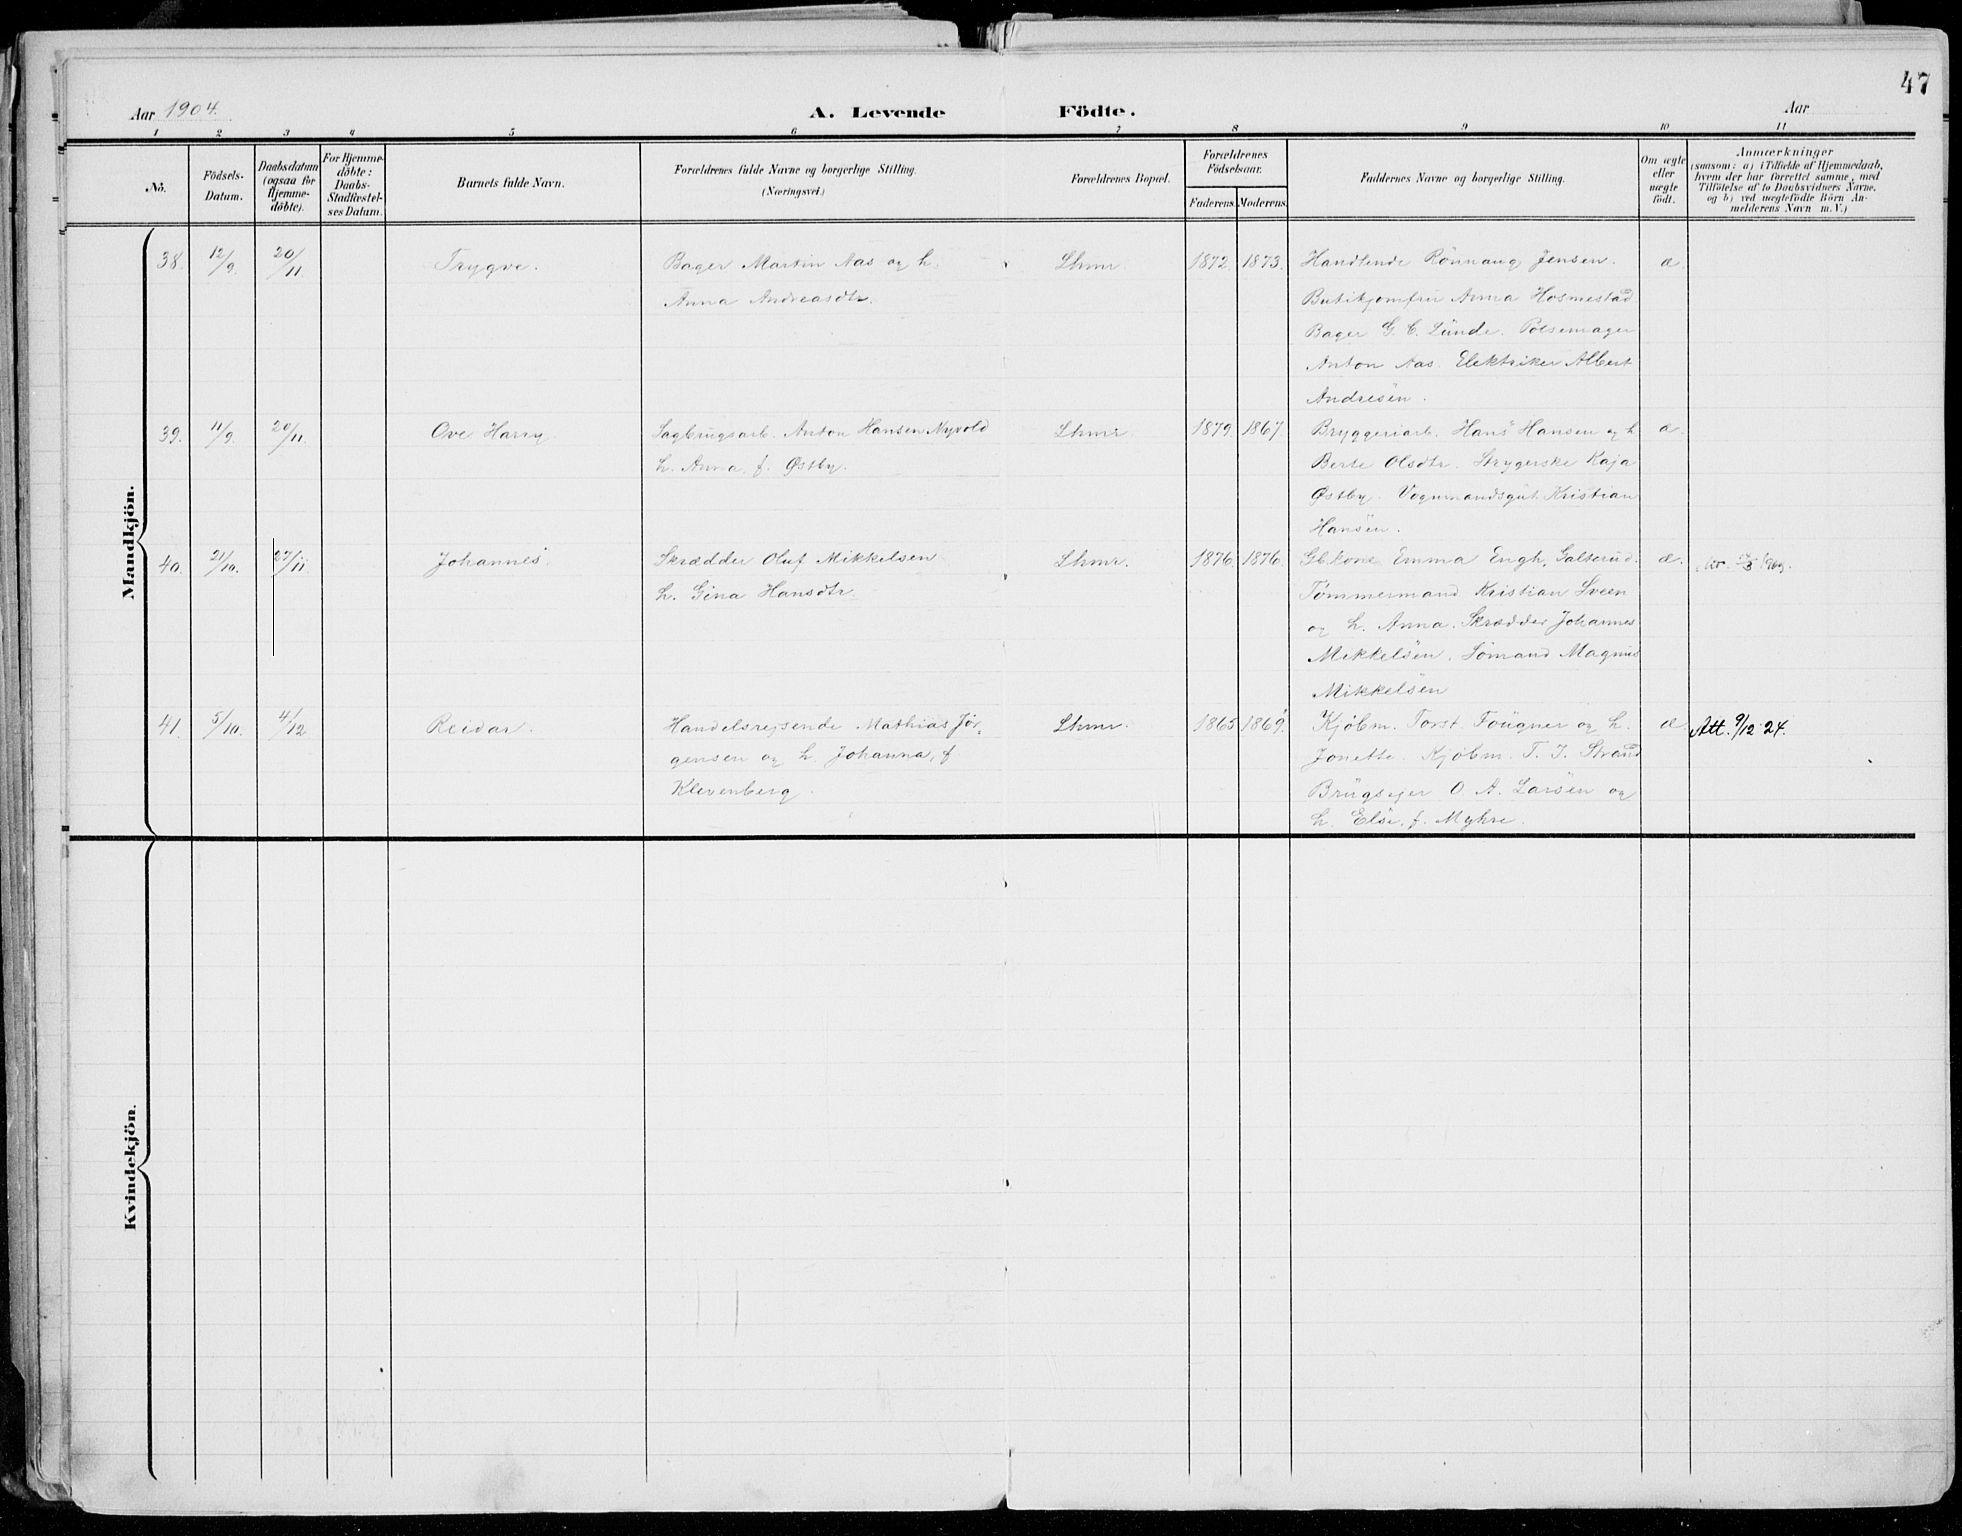 47
Aar 1904.
A. Levende Födte.
Aar
1 2 3 4 5 6 7 8 9 10 11
No.
Födsels-
Datum.
Daabsdatum
(ogsaa for
Hjemme-
döbte).
For Hjemme-
döbte:
Daabs-
Stadfæstel-
ses Datum.
Barnets fulde Navn.
Forældrenes fulde Navne og borgerlige Stilling.
(Næringsvei.)
Forældrenes Bopæl.
Forældrenes
Födselsaar.
Faderens. Moderens.
Faddernes Navne og borgerlige Stilling.
Om ægte
eller
uægte
födt.
Anmærkninger
(saasom: a) i Tilfælde af Hjemmedaab,
hvem der har forrettet samme, med
Tilföielse af to Daabsvidners Navne,
og b) ved uægtefödte Börn An-
melderens Navn m.V.)
Mandkjön.
38. 12/9. 20/11. Trygve. Bager Martin Aas og h. Lhmr. 1872. 1873. Handlende Rönnaug Jensen. æ.
Anna Andreasdtr. Butikjomfru Anna Hosmestad.
Bager G. C. Lunde. Pölsemager
Anton Aas. Elektriker Albert
Andresen.
39. 11/9. 20/11. Ove Harry. Sagbrugsarb. Anton Hansen Nyvold Lhmr. 1879. 1867. Bryggeriarb. Hans Hansen og h. æ.
h. Anna, f. Østby. Berte Olsdtr. Strygerske Kaja
Østby. Vognmandsgut Kristian
Hansen.
40. 21/10. 27/11. Johannes. Skrædder Oluf Mikkelsen Lhmr. 1876. 1876. Gbkone Emma Engh, Salterud. æ.
h. Gina Hansdtr. Tömmermand Kristian Sveen
og h. Anna. Skrædder Johannes
Mikkelsen. Sömand Magnus
Mikkelsen
41. 5/10. 4/12 Reidar. Handelsrejsende Mathias Jör- Lhmr. 1865 1869. Kjöbm. Torst. Fougner og h. æ. Att. 9/12-24.
gensen og h. Johanna, f. Jonette. Kjöbm. T. J. Strand
Klevenberg. Brugsejer O. A. Larsen og
h. Else, f. Myhre.
Kvindekjön.